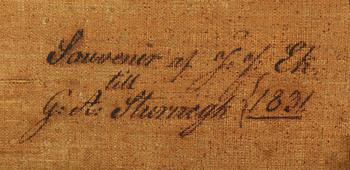 Souvenir af J. J. Ek.
till
G. A. Sturnegk {1831